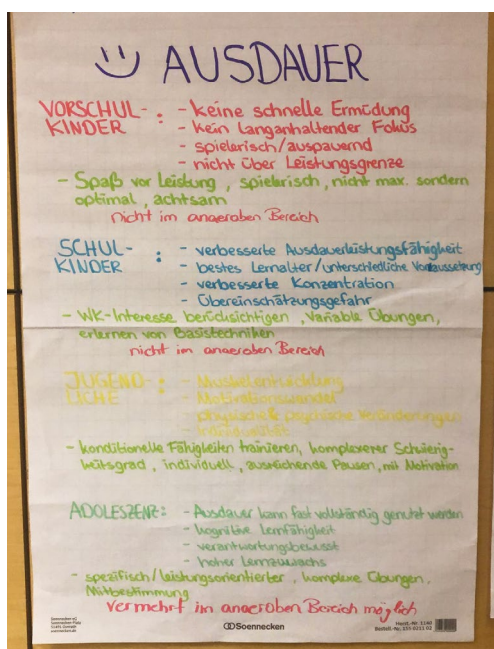 AUSDAUER
VORSCHUL- : - keine schnelle Ermüdung
KINDER - kein langanhaltender Fokus
- spielerisch/auspauernd
- nicht über Leistungsgrenze
- Spaß vor Leistung, spielerisch, nicht max. sondern
optimal, achtsam
nicht im anaeroben Bereich
SCHUL- : - verbesserte Ausdauerleistungsfähigkeit
KINDER - bestes Lernalter/unterschiedliche Voraussetzung
- verbesserte Konzentration
- Übereinschätzungsgefahr
- WK-Interesse berücksichtigen, Variable Übungen,
erlernen von Basistechniken
nicht im anaeroben Bereich
JUGEND- : - Muskelentwicklung
LICHE - Motivationswandel
- physische & psychische Veränderungen
- Individualität
- konditionelle Fähigkeiten trainieren, komplexerer Schwierig-
keitsgrad, individuell, ausreichende Pausen, mit Motivation
ADOLESZENZ: - Ausdauer kann fast vollständig genutzt werden
- kognitive Lernfähigkeit
- verantwortungsbewusst
- hoher Lernzuwachs
- spezifisch/leistungsorientierter, komplexe Übungen,
Mitbestimmung
vermehrt im anaeroben Bereich möglich
Soennecken eG
Soennecken-Platz
51491 Overath
soennecken.de
Soennecken